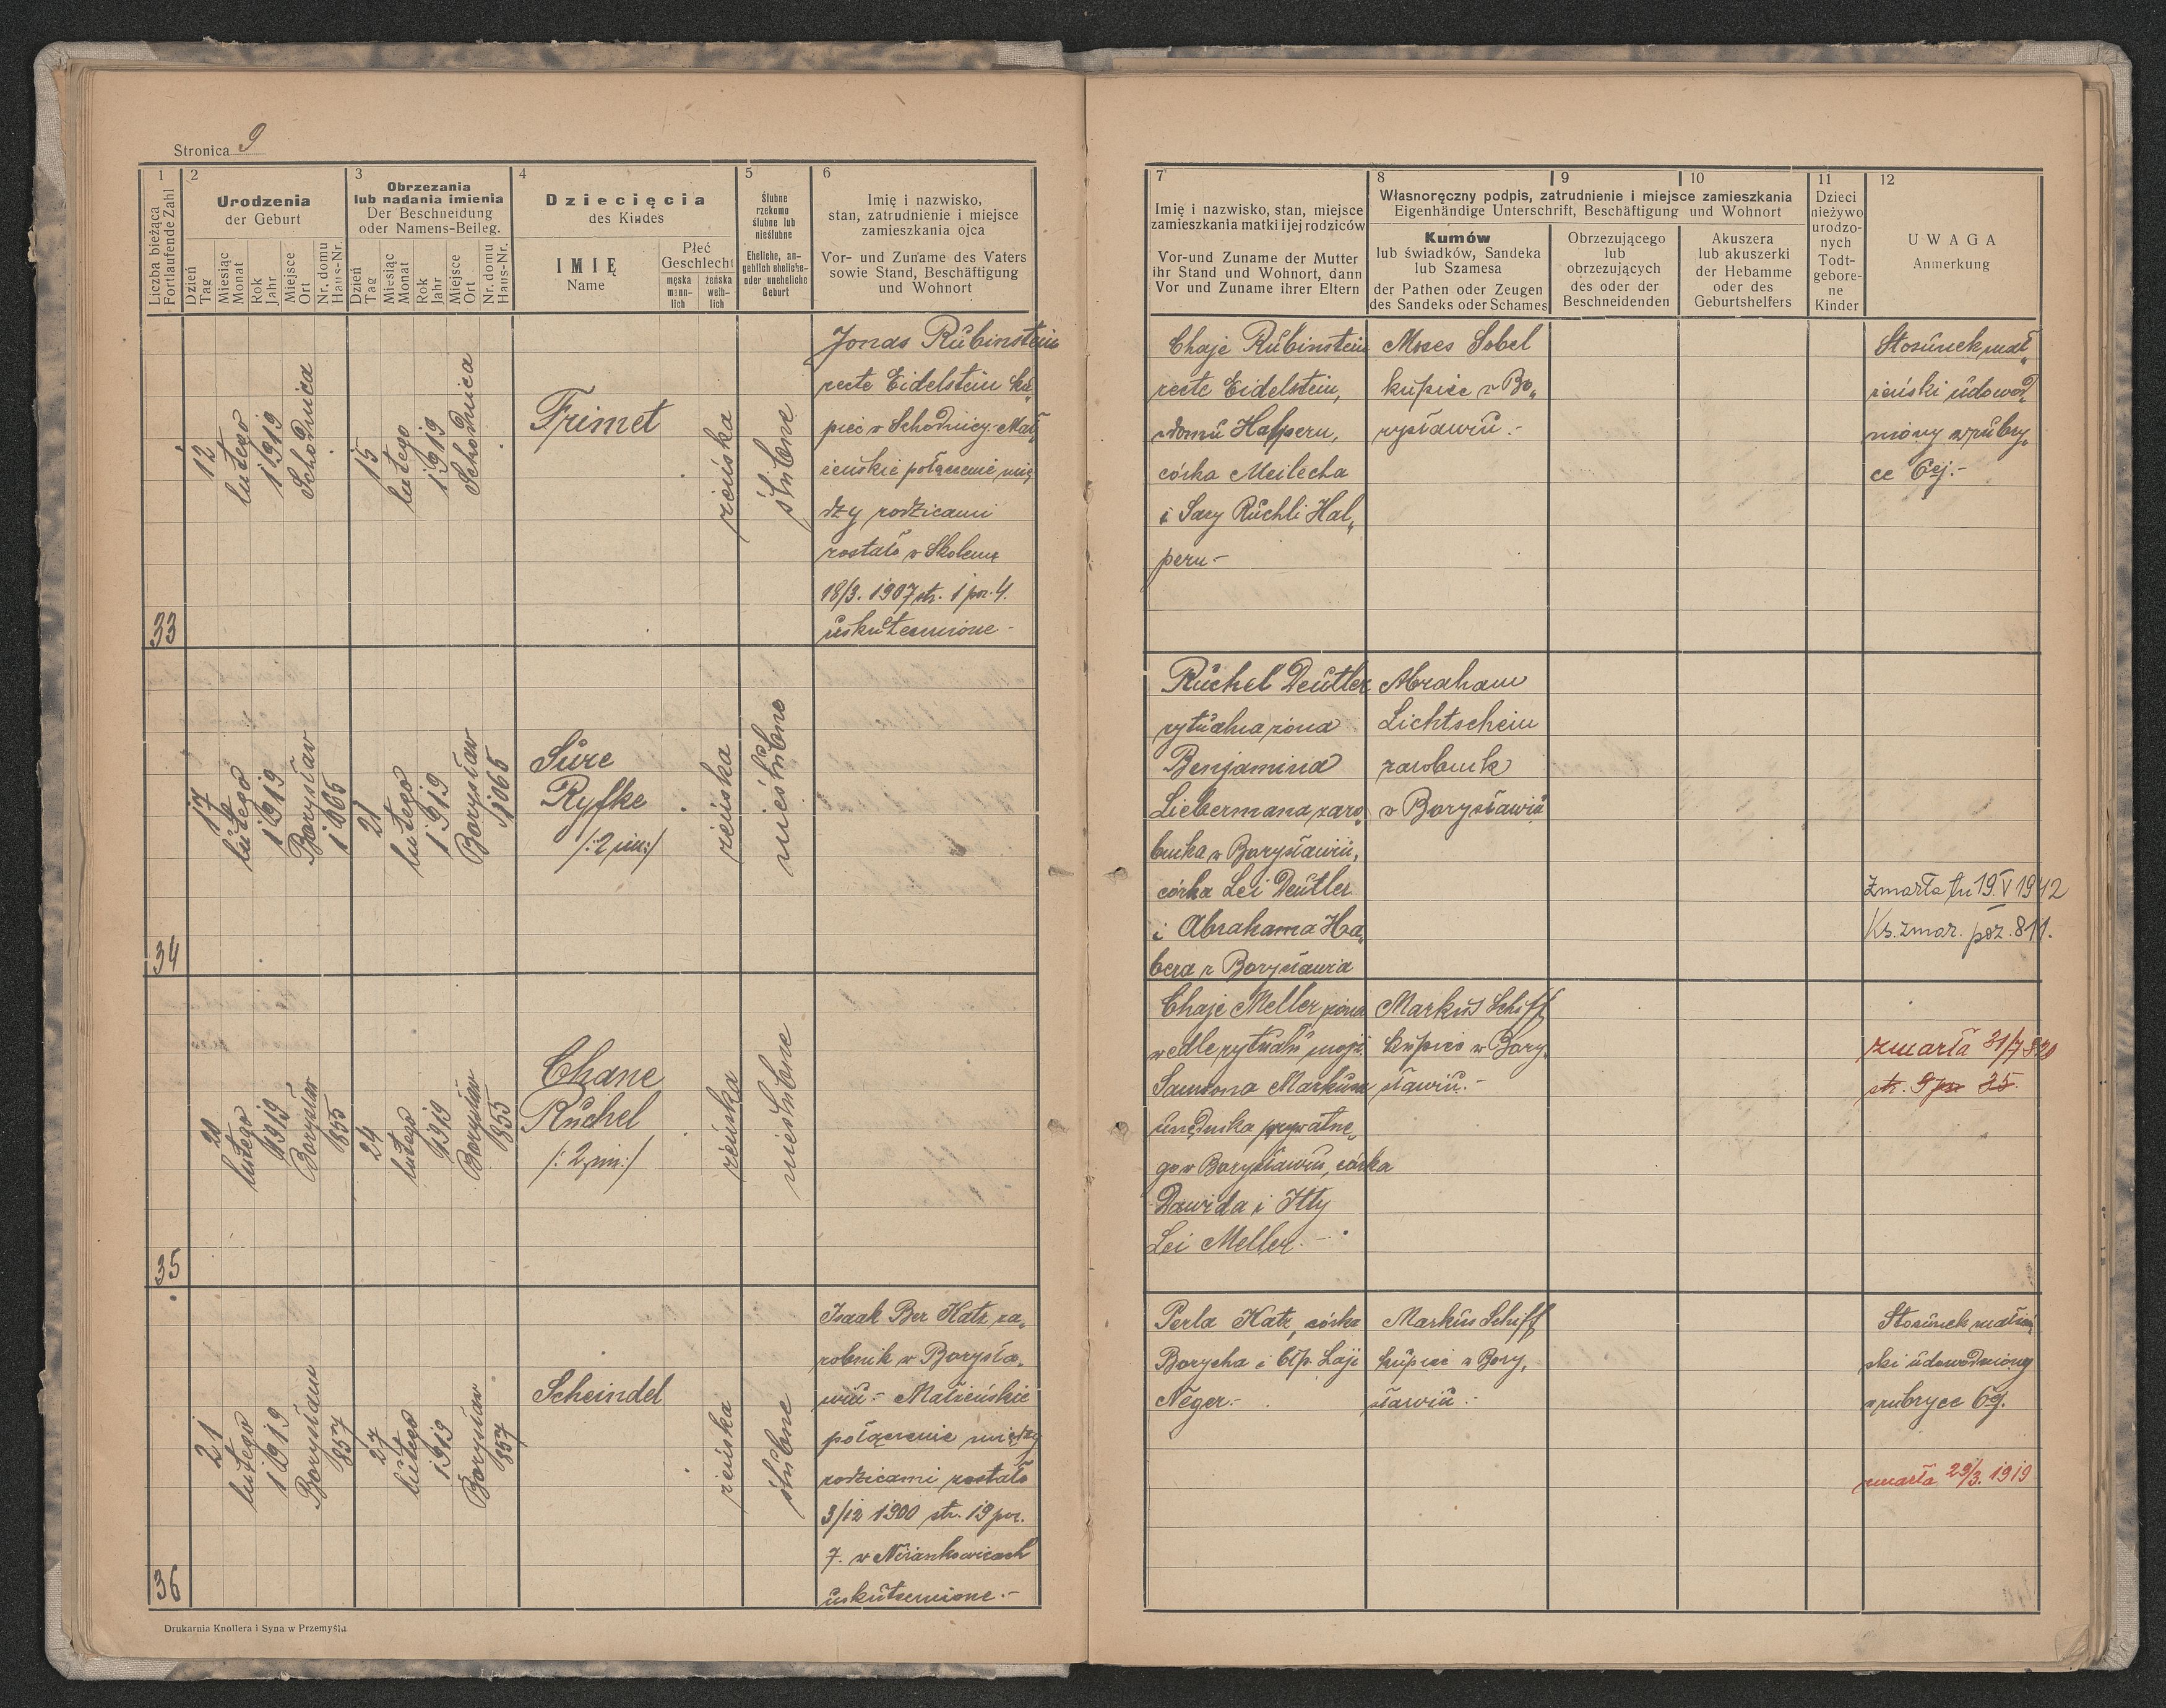 Stronica 9
1
Liczba bieżąca
Fortlaufende Zahl
2
Urodzenia
der Geburt
Dzień
Tag
Miesiąc
Monat
Rok
Jahr
Miejsce
Ort
Nr. domu
Haus-Nr.
3
Obrzezania
lub nadania imienia
Der Beschneidung
oder Namens-Beileg.
Dzień
Tag
Miesiąc
Monat
Rok
Jahr
Miejsce
Ort
Nr. domu
Haus-Nr.
4
Dziecięcia
des Kindes
IMIĘ
Name
Płeć
Geschlecht
męska
männ-
lich
żeńska
weib-
lich
5
Ślubne
rzekomo
ślubne lub
nieślubne
Eheliche, an-
geblich eheliche-
oder uneheliche
Geburt
6
Imię i nazwisko,
stan, zatrudnienie i miejsce
zamieszkania ojca
Vor- und Zuname des Vaters
sowie Stand, Beschäftigung
und Wohnort
7
Imię i nazwisko, stan, miejsce
zamieszkania matki i jej rodziców
Vor-und Zuname der Mutter
ihr Stand und Wohnort, dann
Vor und Zuname ihrer Eltern
8
9
10
Własnoręczny podpis, zatrudnienie i miejsce zamieszkania
Eigenhändige Unterschrift, Beschäftigung und Wohnort
Kumów
lub świadków, Sandeka
lub Szamesa
der Pathen oder Zeugen
des Sandeks oder Schames
Obrzezującego
lub
obrzezujących
des oder der
Beschneidenden
Akuszera
lub akuszerki
der Hebamme
oder des
Geburtshelfers
11
Dzieci
nieżywo
urodzo-
nych
Todt-
gebore-
ne
Kinder
12
UWAGA
Anmerkung
33
12
lutego
1919
Schodnica
15
lutego
1919
Schodnica
Frimet
żeńska
ślubne
Jonas Rubinstein
recte Eidelstein ku„
piec w Schodnicy: Mał„
żeńskie połączenie mię„
dzy rodzicami
zostało w Skolem
18/3. 1907 str. 1 poz. 4.
uskutecznione -
Chaje Rubinstein
recte Eidelstein,
z domu Halpern,
córka Meilecha
i Sary Ruchli Hal„
pern -
Moses Sobel
kupiec w Bo„
rysławiu. -
Stosunek mał„
żeński udowod„
niony w rubry„
ce 6ej. -
34
17
lutego
1919
Borysław
1065
21
lutego
1919
Borysław
1065
Sure
Ryfke
/:2 im:/
żeńska
nieślubne
Ruchel Deutler
rytualna żona
Benjamina
Liebermana zaro„
bnika w Borysławiu,
córka Lei Deutler
i Abrahama Ha„
bera z Borysławia
Abraham
Lichtschein
zarobnik
w Borysławiu
Zmarła tu 19.V 1942
Ks. zmar. poz. 811.
35
20
lutego
1919
Borysław
855
24
lutego
1919
Borysław
855
Chane
Ruchel
/: 2 im:/
żeńska
nieślubne
Chaje Meller żona
wedle rytuału mojż.
Samsona Markusa
urzędnika prywatne„
go w Borysławiu, córka
Dawida i Itty
Lei Meller. -
Markus Schiff
kupiec w Bory„
sławiu. -
zmarła 31/7 920
str. 9 poz 35.
36
21
lutego
1919
Borysław
857
27
lutego
1919
Borysław
857
Scheindel
żeńska
ślubne
Isaak Ber Katz za„
robnik w Borysła„
wiu. - Małżeńskie
połączenie między
rodzicami zostało
3/12 1900 str. 19 poz.
7. w Niżankowicach
uskutecznione. -
Perla Katz, córka
Borycha i Cip. Łaji
Neger. -
Markus Schiff
kupiec w Bory„
sławiu. -
Stosunek małżeń„
ski udowodniony
w rubryce 6ej.
zmarła 29/3. 1919
Drukarnia Knollera i Syna w Przemyślu